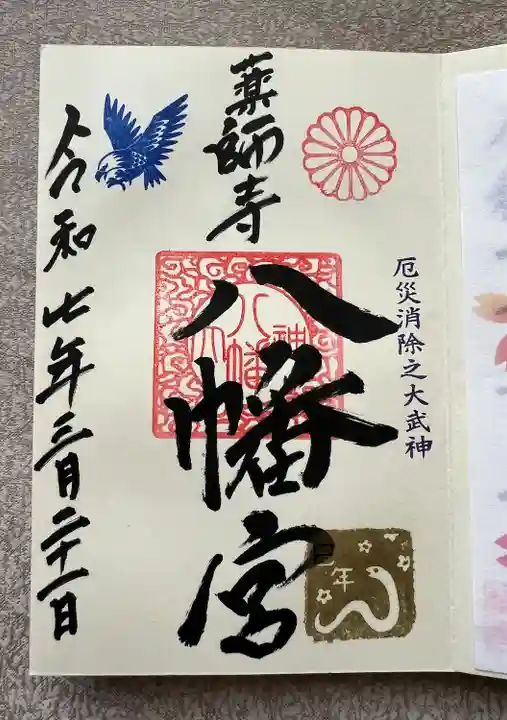 厄災消除之大武神
薬師寺
八幡宮
巳年
令和七年三月二十一日